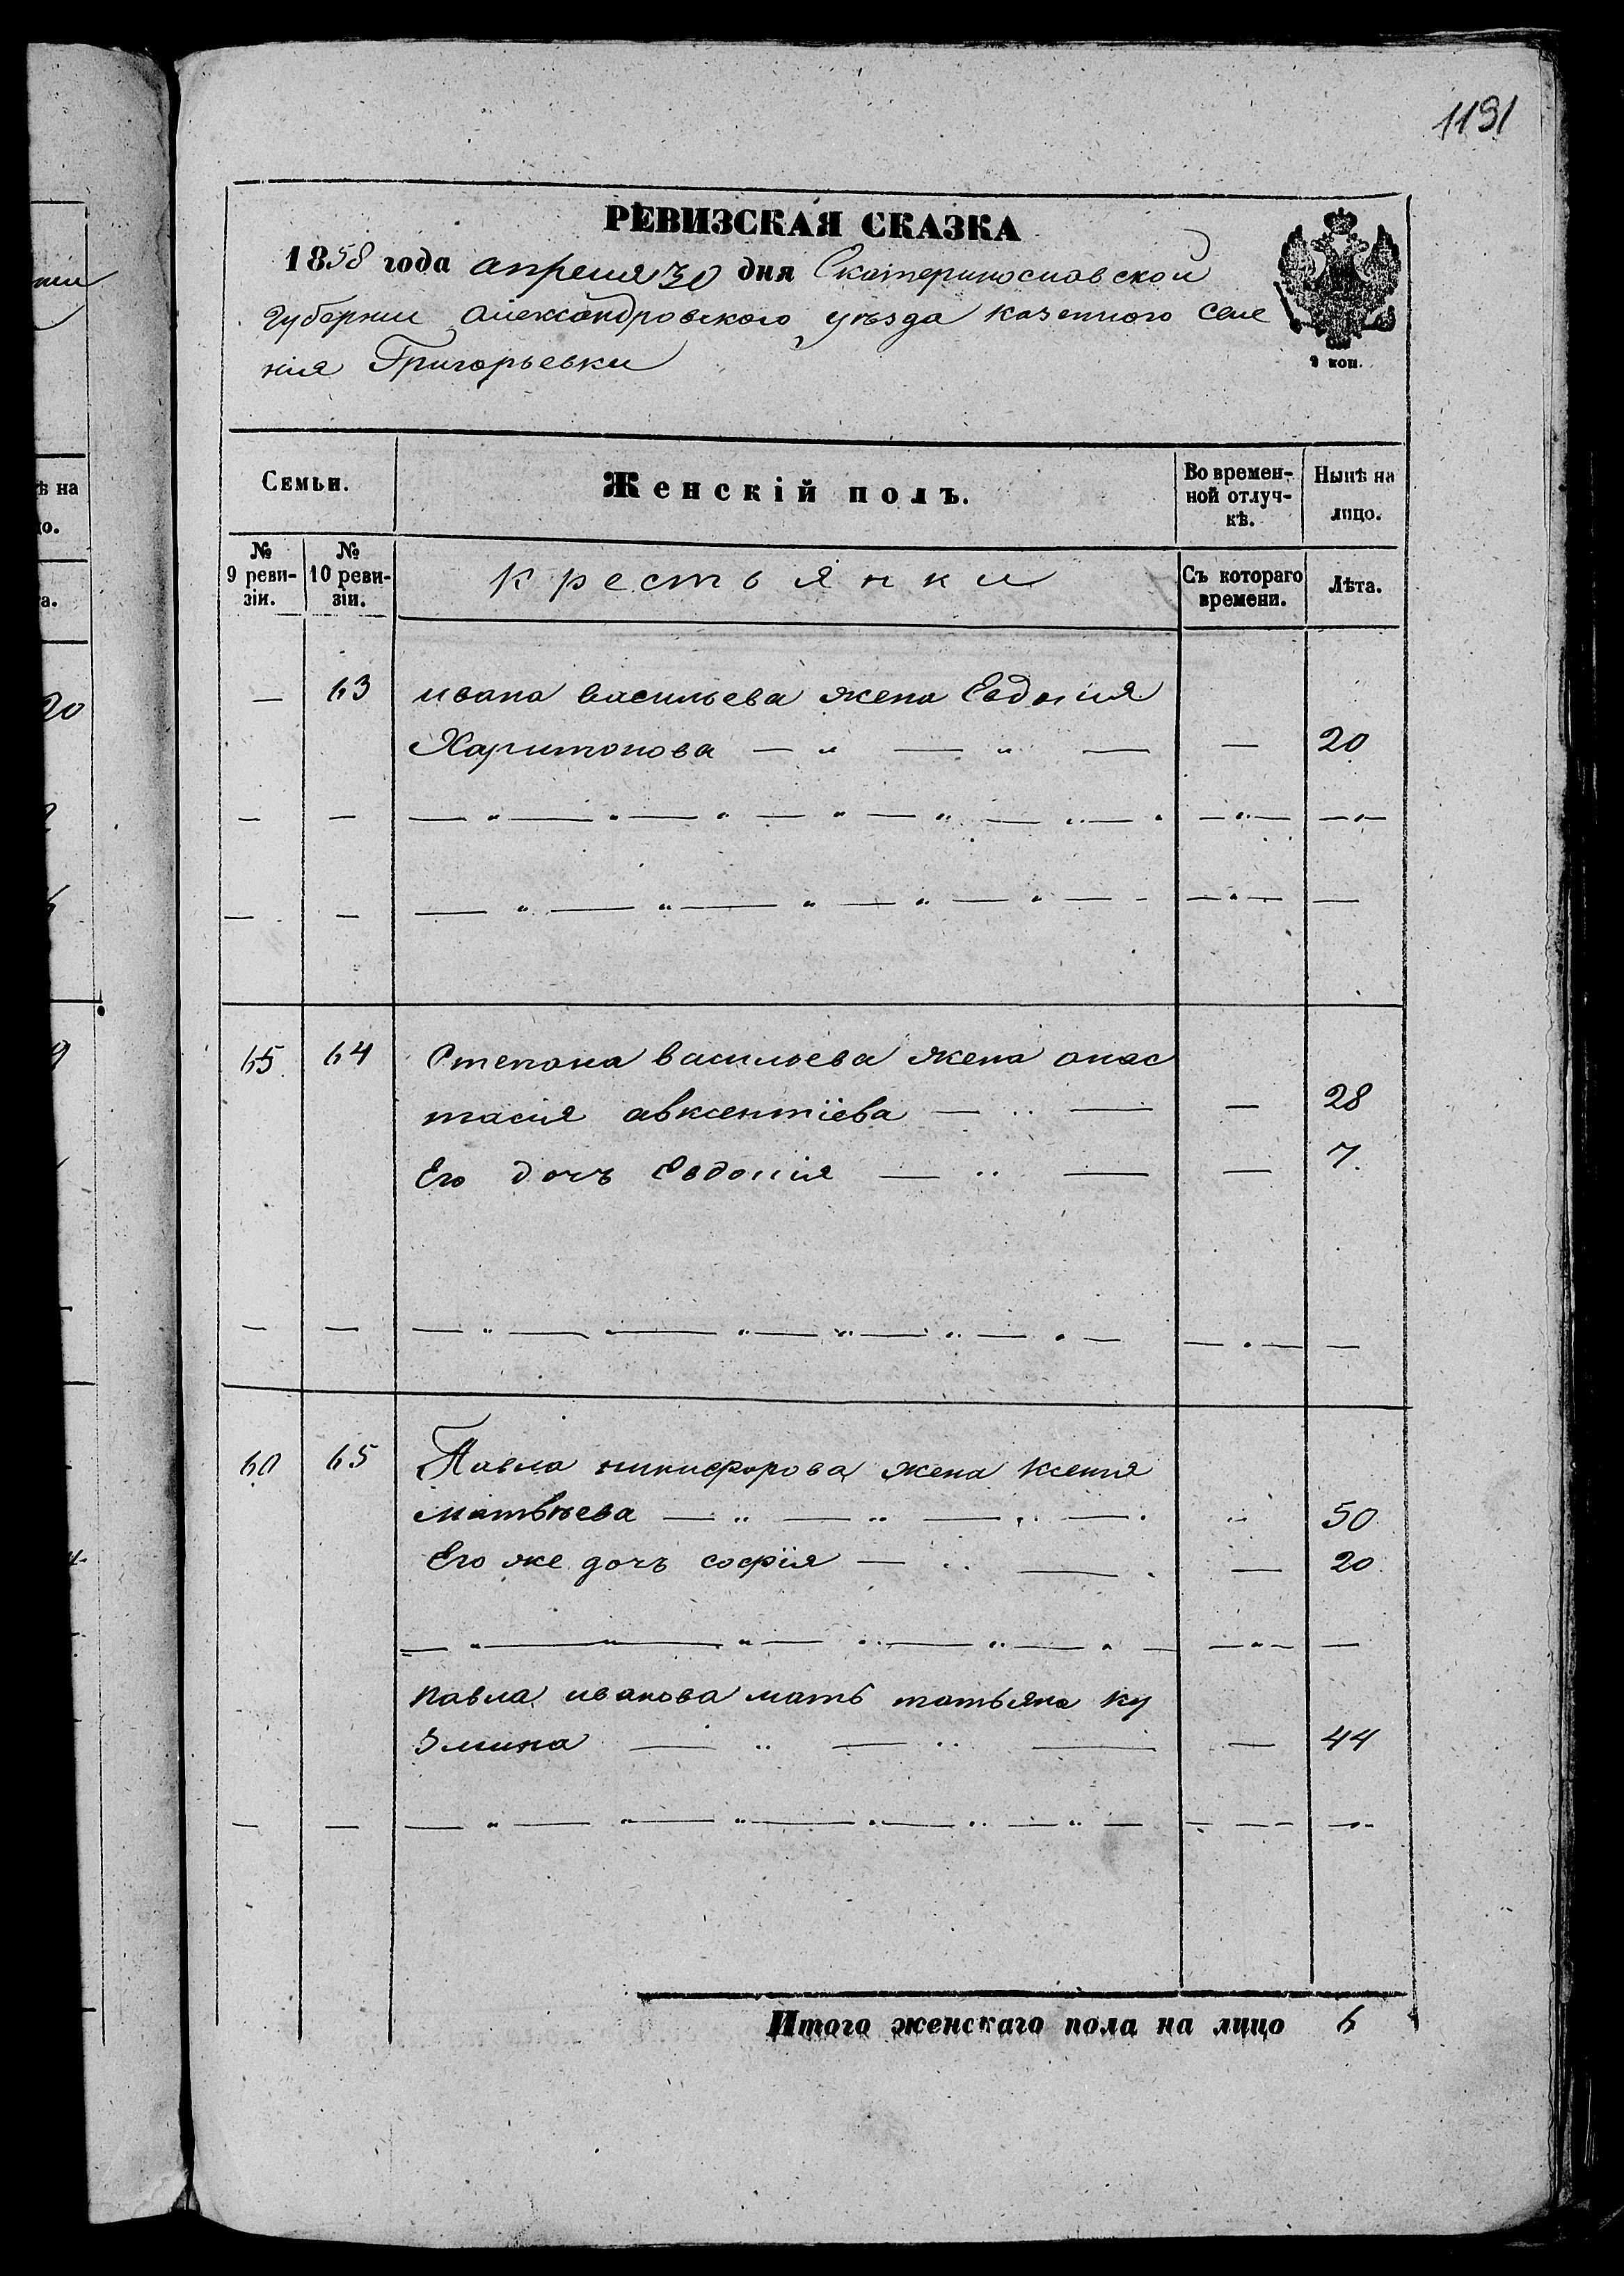 1191
РЕВИЗСКАЯ СКАЗКА
1858 года апреля 30 дня Екатеринославской
Губернии Александровского уѣзда казенного селе
ния Григорьевки
2 коп.
Семьи. Женскій полъ. Во времен-
ной отлуч-
кѣ. Нынѣ на
лицо.
№
9 реви-
зіи. №
10 реви-
зіи. Крестьянки Съ котораго
времени. Лѣта.
— 63 ивана васильева жена Евдокия
Харитонова — 20
65 64 Степана васильева жена анас
тасия авксентіева — 28
Его дочъ Евдокия — 7.
60 65 Павла никифорова жена ксения
матвѣева 50
Его же дочъ софія — 20
павла иванова мать татьяна ку
змина — 44
Итого женскаго пола на лицо 6
ѣ на
о.
а.
20